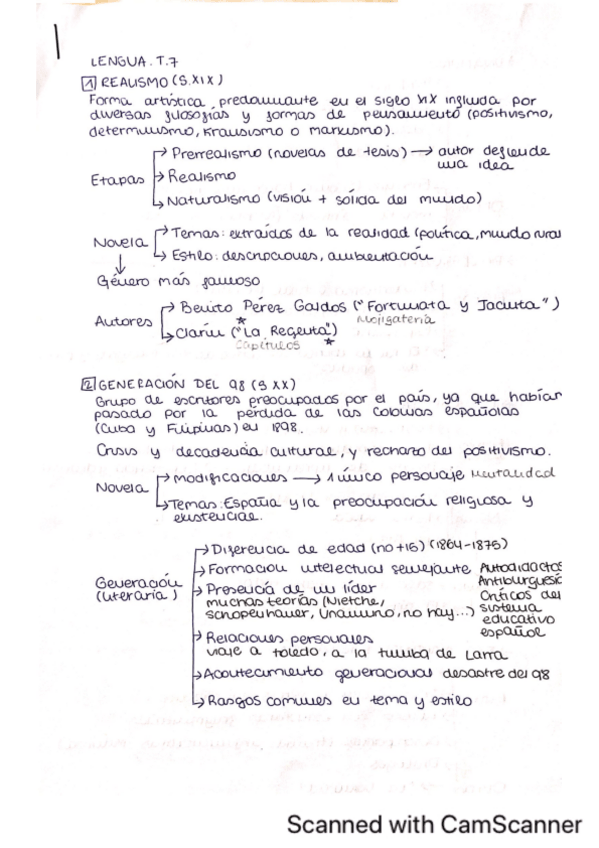 LENGUA. T.7
1 REALISMO (S.XIX)
Forma artística, predominante en el siglo XIX influida por
diversas filosofías y formas de pensamiento (positivismo,
determinismo, Krausismo o marxismo).
Etapas
→ Prerrealismo (novelas de tesis) → autor defiende
una idea
→ Realismo
→ Naturalismo (visión + sólida del mundo)
Novela
→ Temas: extraídos de la realidad (política, mundo rural
→ Estilo: descripciones, ambientación
Género más famoso
Autores
→ Benito Pérez Galdos ("Fortunata y Jacinta")
Mojigatería
→ Clarín ("La Regenta")
Capítulos
2 GENERACIÓN DEL 98 (S XX)
Grupo de escritores preocupados por el país, ya que habían
pasado por la pérdida de las colonias españolas
(Cuba y Filipinas) en 1898.
Crisis y decadencia cultural, y rechazo del positivismo.
Novela
→ modificaciones → 1 único personaje mentalidad
→ Temas: España y la preocupación religiosa y
existencial.
Generación
(literaria)
→ Diferencia de edad (no +15) (1864-1875)
→ Formación intelectual semejante
Autodidactos
Antiburgués
Críticos del
sistema
educativo
español
→ Presencia de un líder
muchas teorías (Nietche,
schopenhauer, Unamuno, no hay...)
→ Relaciones personales
viaje a toledo, a la tumba de Larra
→ Acontecimiento generacional desastre del 98
→ Rasgos comunes en tema y estilo
Scanned with CamScanner